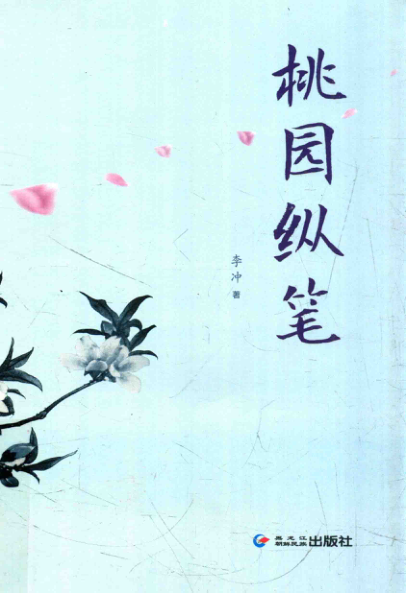 桃园纵笔
李冲 著
黑龙江
朝鲜民族
出版社